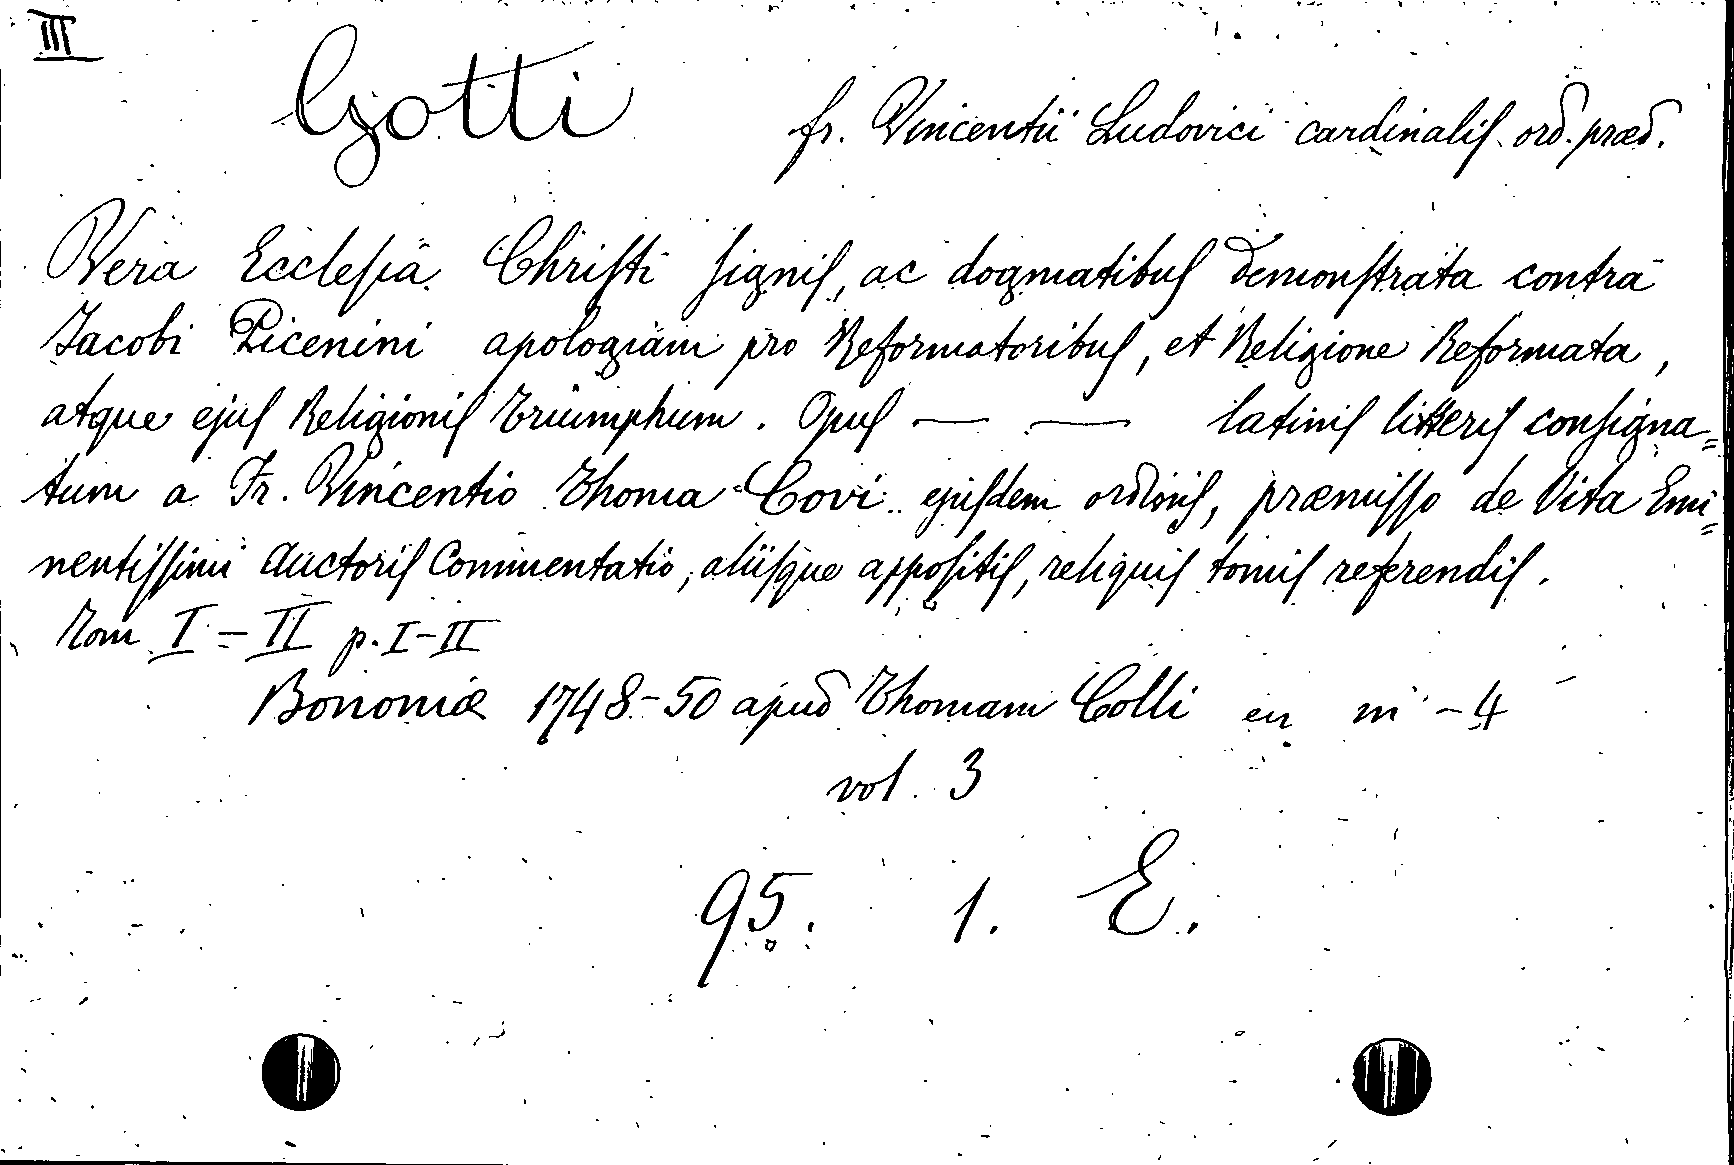 III
Gotti fr. Vincentii Ludovici cardinalis ord. præd.
Vera Ecclesia Christi signis, ac dogmatibus demonstrata contra
Jacobi Picenini apologiam pro Reformatoribus, et Religione Reformata,
atque ejus Religionis Triumphum. Opus — — latinis litteris consigna=
tum a Fr. Vincentio Thoma Covi ejusdem ordinis, præmisso de Vita Emi=
nentissimi Auctoris Commentatio, aliisque appositis, reliquis tomis referendis.
Tom I = II p. I-II
Bononiæ 1748-50 apud Thomam Colli en in - 4
vol. 3
95. 1. E.